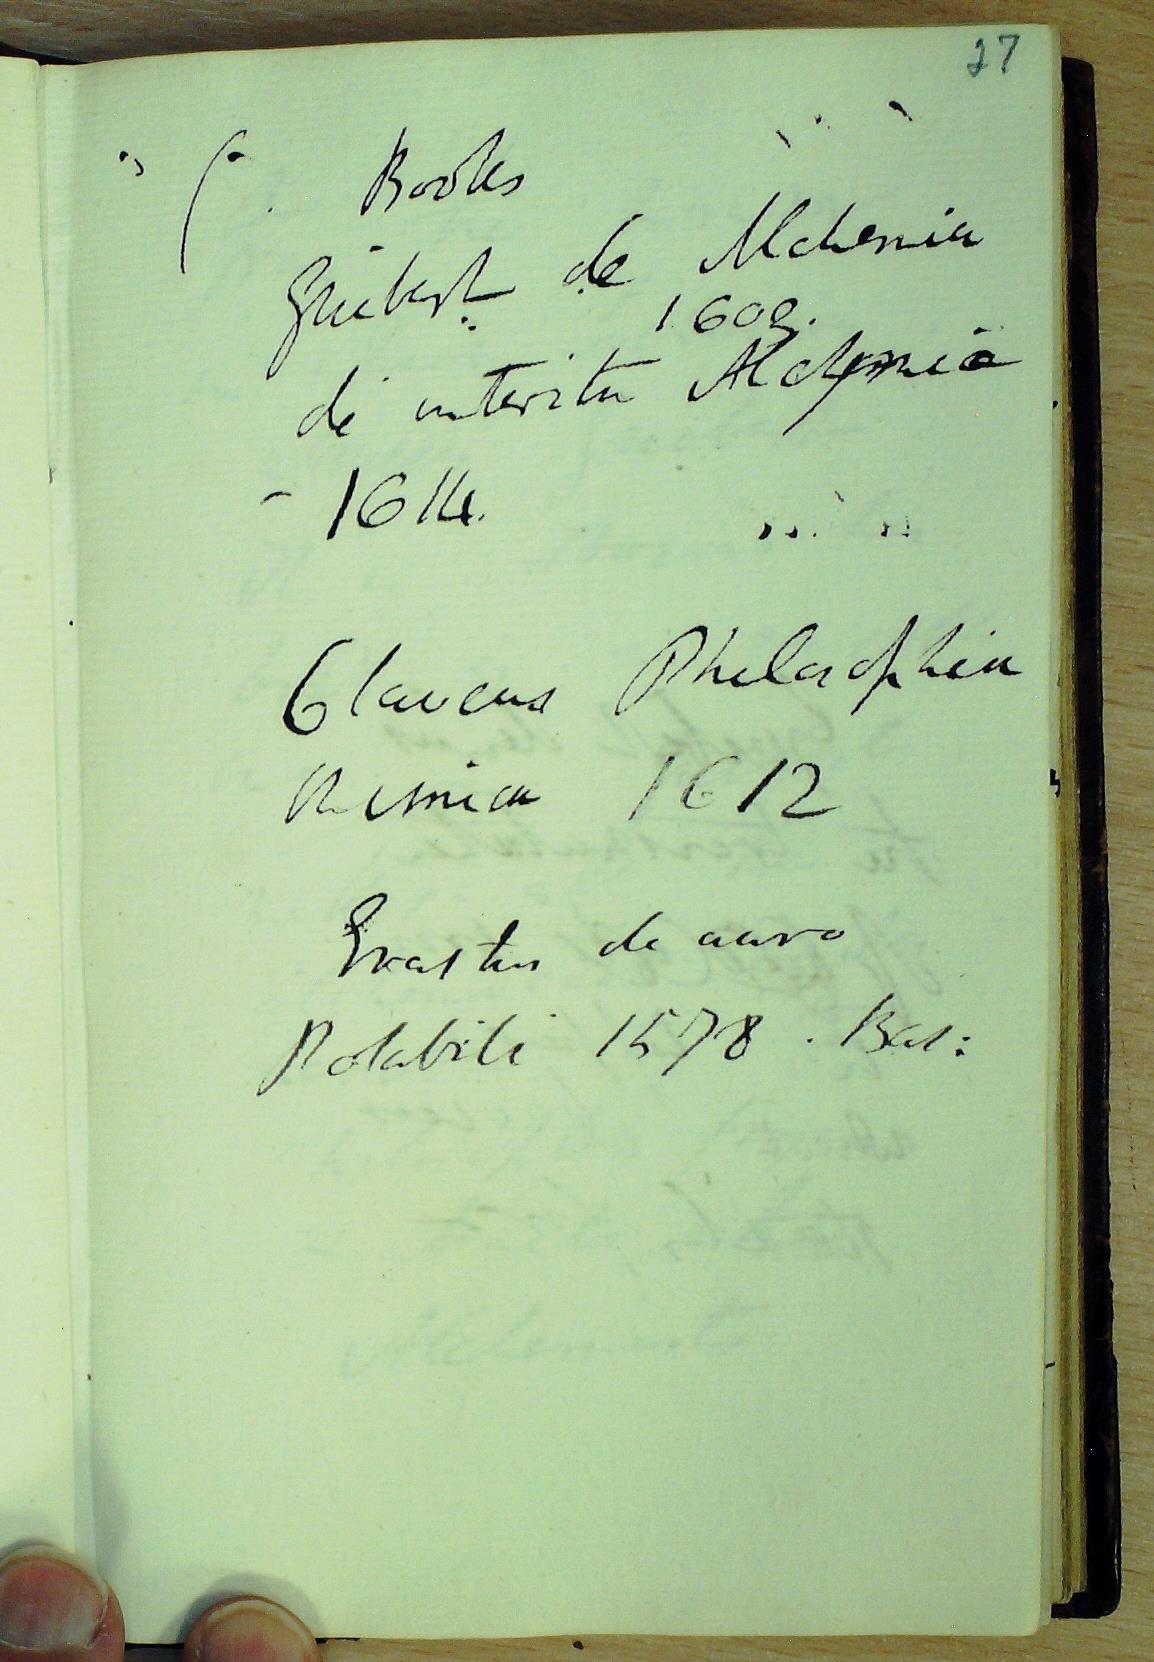 27
Books
Guibert de Alchemia
1603.
de interitu Alchymia
- 1614.
Claveus Philosophia
Chemica 1612
Erastus de auro
Potabili 1578. Bas: